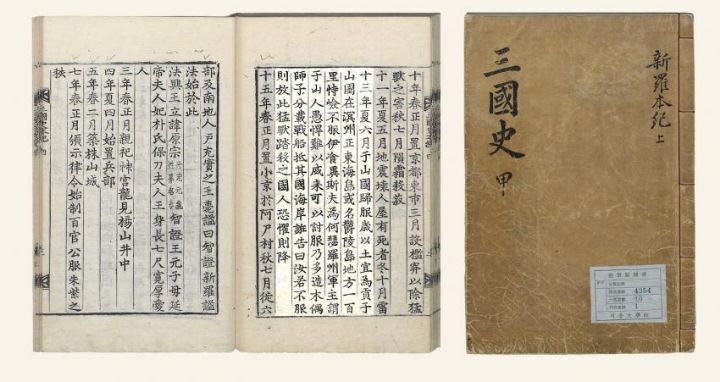 十年春正月置京都東市三月設檻穽以除猛
獸之害秋七月隕霜殺菽
十一年夏五月地震壞人屋有死者冬十月雷
十三年夏六月于山國歸服歲以土宜爲貢于
山國在溟州正東海島或名鬱陵島地方一百
里恃嶮不服伊飡異斯夫爲何瑟羅州軍主謂
于山人愚悍難以威來可以計服乃多造木偶
師子分載戰船抵其國海岸誑告曰汝若不服
則放此猛獸踏殺之國人恐懼則降
十五年春正月置小京於阿尸村秋七月徙六
部及南地人戶充實之王薨諡曰智證新羅諡
法始於此
法興王立諱原宗冊府元龜姓募名泰智證王元子母延
帝夫人妃朴氏保刀夫人王身長七尺寬厚愛
人
三年春正月親祀神宮龍見楊山井中
四年夏四月始置兵部
五年春二月築株山城
七年春正月頒示律令始制百官公服朱紫之
秩
新羅本紀上
三國史 甲
4354
10
1